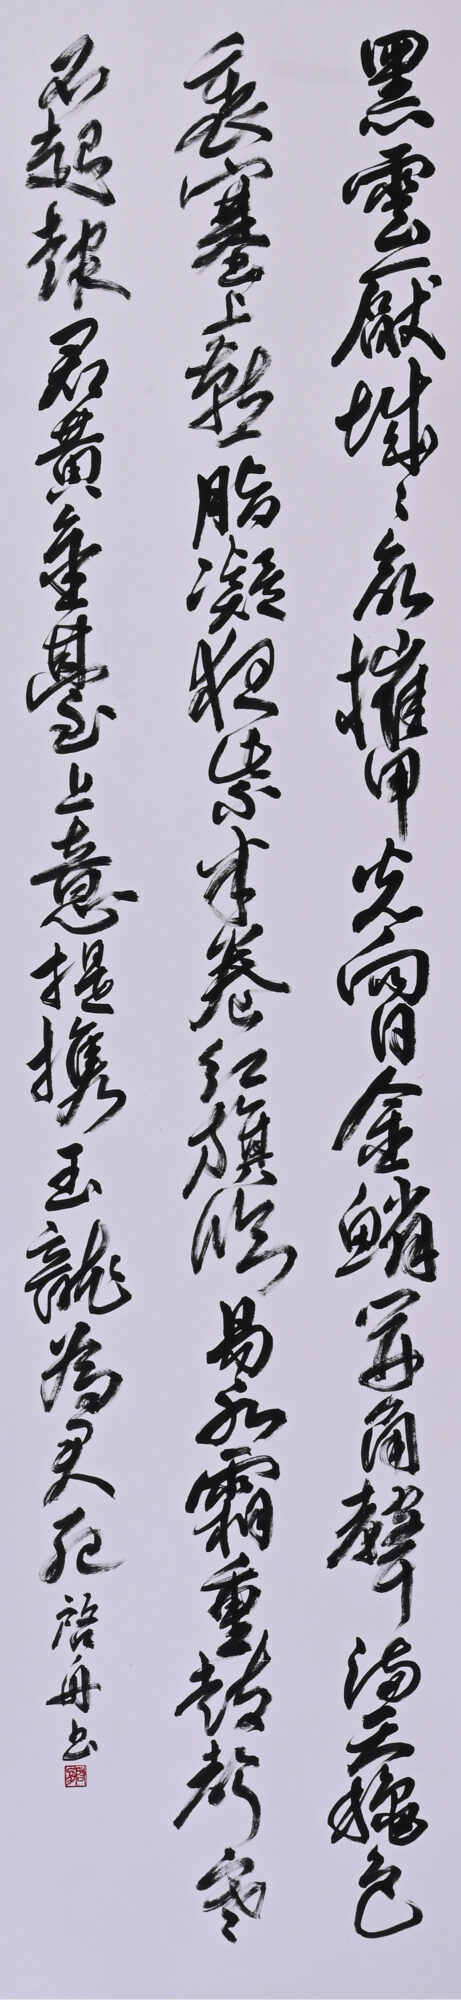 黑雲厭城〻欲摧甲光向日金鱗開角聲滿天穐色
裏塞上燕脂凝夜紫半卷紅旗臨易水霜重鼓聲寒
不起報君黃金臺上意提攜玉龍為君死 啓舟書